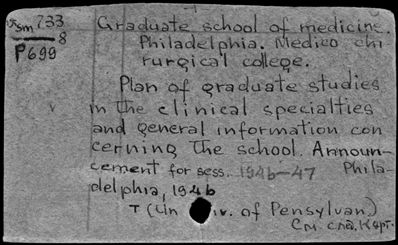 sm 733
8
P699
Graduate school of medicine.
Philadelphia. Medico chi
rurgical college.
Plan of graduate studies
in the clinical specialties
and general information con
cerning the school. Announ-
cement for sess. 1946-47 Phila-
delphia, 1946
T (Un iv. of Pensylvan)
См. сла. Карт.